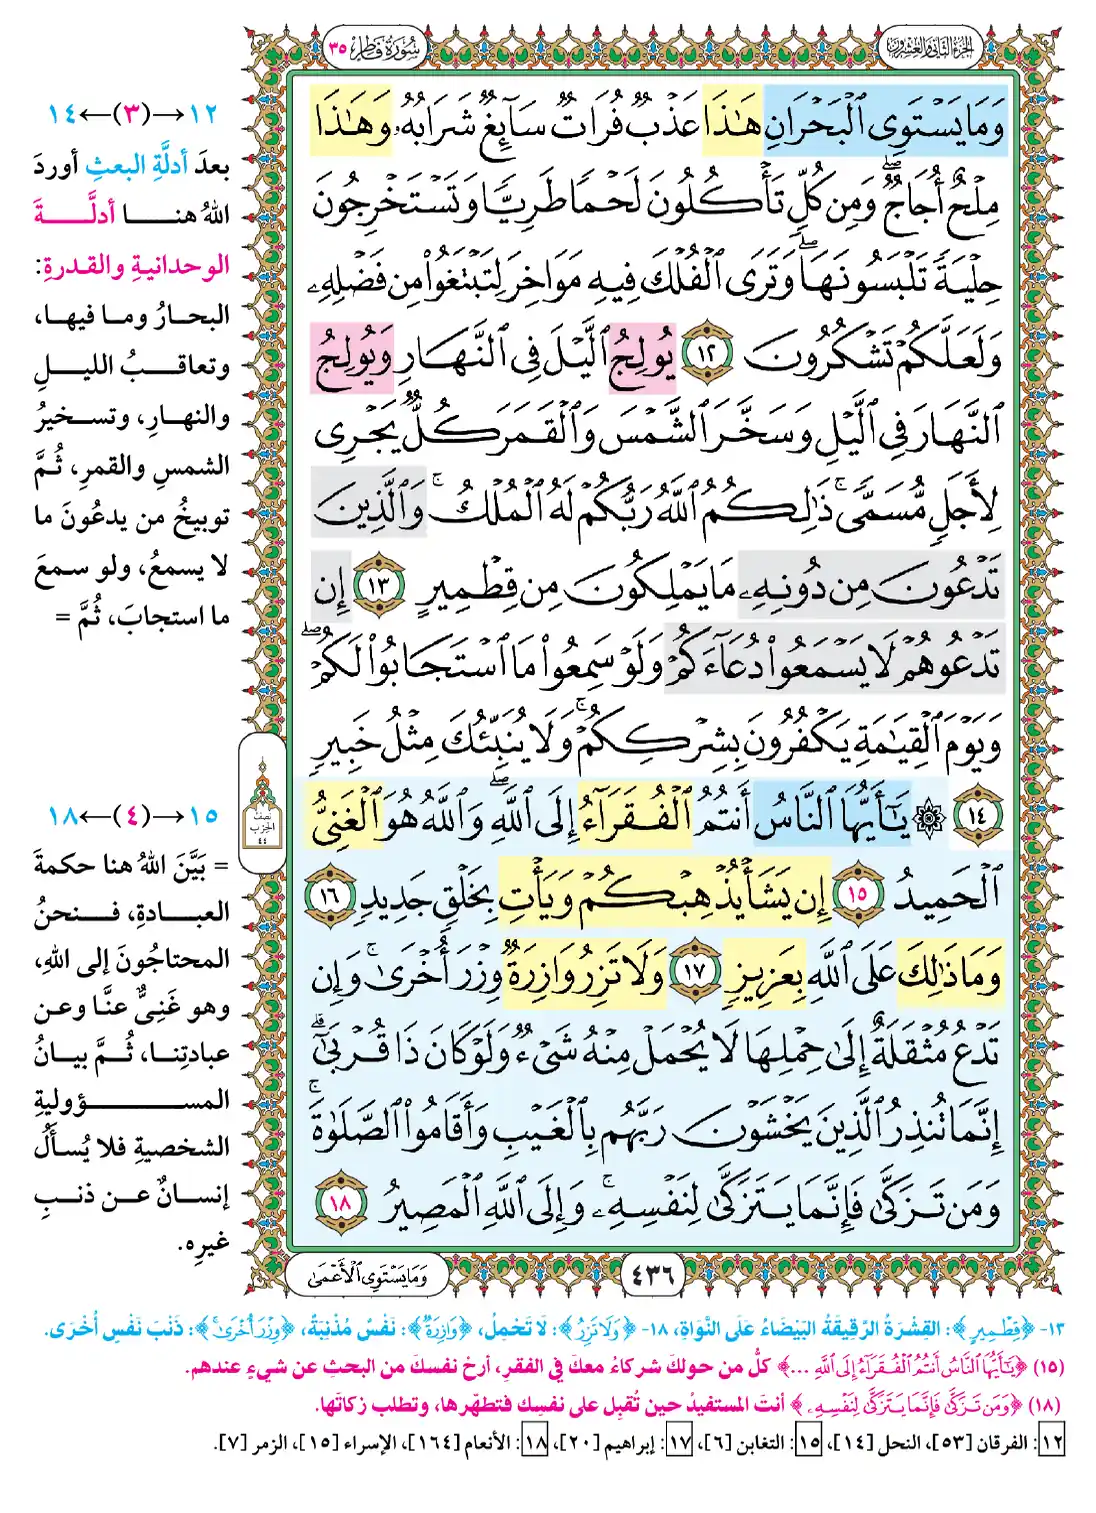 الجزء الثاني والعشرون
سُورَةُ فَاطِر ٣٥
وَمَا يَسۡتَوِي ٱلۡبَحۡرَانِ هَٰذَا عَذۡبٞ فُرَاتٞ سَآئِغٞ شَرَابُهُۥ وَهَٰذَا
مِلۡحٌ أُجَاجٞۖ وَمِن كُلّٖ تَأۡكُلُونَ لَحۡمٗا طَرِيّٗا وَتَسۡتَخۡرِجُونَ
حِلۡيَةٗ تَلۡبَسُونَهَاۖ وَتَرَى ٱلۡفُلۡكَ فِيهِ مَوَاخِرَ لِتَبۡتَغُواْ مِن فَضۡلِهِۦ
وَلَعَلَّكُمۡ تَشۡكُرُونَ ١٢ يُولِجُ ٱلَّيۡلَ فِي ٱلنَّهَارِ وَيُولِجُ
ٱلنَّهَارَ فِي ٱلَّيۡلِ وَسَخَّرَ ٱلشَّمۡسَ وَٱلۡقَمَرَ كُلّٞ يَجۡرِي
لِأَجَلٖ مُّسَمّٗىۚ ذَٰلِكُمُ ٱللَّهُ رَبُّكُمۡ لَهُ ٱلۡمُلۡكُۚ وَٱلَّذِينَ
تَدۡعُونَ مِن دُونِهِۦ مَا يَمۡلِكُونَ مِن قِطۡمِيرٍ ١٣ إِن
تَدۡعُوهُمۡ لَا يَسۡمَعُواْ دُعَآءَكُمۡ وَلَوۡ سَمِعُواْ مَا ٱسۡتَجَابُواْ لَكُمۡۖ
وَيَوۡمَ ٱلۡقِيَٰمَةِ يَكۡفُرُونَ بِشِرۡكِكُمۡۚ وَلَا يُنَبِّئُكَ مِثۡلُ خَبِيرٖ
١٤ ۞ يَٰٓأَيُّهَا ٱلنَّاسُ أَنتُمُ ٱلۡفُقَرَآءُ إِلَى ٱللَّهِۖ وَٱللَّهُ هُوَ ٱلۡغَنِيُّ
ٱلۡحَمِيدُ ١٥ إِن يَشَأۡ يُذۡهِبۡكُمۡ وَيَأۡتِ بِخَلۡقٖ جَدِيدٖ ١٦
وَمَا ذَٰلِكَ عَلَى ٱللَّهِ بِعَزِيزٖ ١٧ وَلَا تَزِرُ وَازِرَةٞ وِزۡرَ أُخۡرَىٰۚ وَإِن
تَدۡعُ مُثۡقَلَةٌ إِلَىٰ حِمۡلِهَا لَا يُحۡمَلۡ مِنۡهُ شَيۡءٞ وَلَوۡ كَانَ ذَا قُرۡبَىٰٓۗ
إِنَّمَا تُنذِرُ ٱلَّذِينَ يَخۡشَوۡنَ رَبَّهُم بِٱلۡغَيۡبِ وَأَقَامُواْ ٱلصَّلَوٰةَۚ
وَمَن تَزَكَّىٰ فَإِنَّمَا يَتَزَكَّىٰ لِنَفۡسِهِۦۚ وَإِلَى ٱللَّهِ ٱلۡمَصِيرُ ١٨
٤٣٦
وَمَا يَسۡتَوِي ٱلۡأَعۡمَىٰ
١٢→(٣)←١٤
بعدَ أدلَّةِ البعثِ أوردَ
اللهُ هنا أدلَّةَ
الوحدانيةِ والقدرةِ:
البحارُ وما فيها،
وتعاقبُ الليلِ
والنهارِ، وتسخيرُ
الشمسِ والقمرِ، ثُمَّ
توبيخُ من يدعُونَ ما
لا يسمعُ، ولو سمعَ
ما استجابَ، ثُمَّ =
نصف
الحزب
٤٤
١٥→(٤)←١٨
= بَيَّنَ اللهُ هنا حكمةَ
العبادةِ، فنحنُ
المحتاجُونَ إلى اللهِ،
وهو غَنِيٌّ عنَّا وعن
عبادتِنا، ثُمَّ بيانُ
المسؤوليةِ
الشخصيةِ فلا يُسألُ
إنسانٌ عن ذنبِ
غيرِه.
١٣- ﴿قِطۡمِيرٍ﴾: القِشْرَةُ الرَّقِيقَةُ البَيْضَاءُ عَلَى النَّوَاةِ، ١٨- ﴿وَلَا تَزِرُ﴾: لَا تَحْمِلُ، ﴿وَازِرَةٞ﴾: نَفْسٌ مُذْنِبَةٌ، ﴿وِزۡرَ أُخۡرَىٰۚ﴾: ذَنْبَ نَفْسٍ أُخْرَى.
(١٥) ﴿يَٰٓأَيُّهَا ٱلنَّاسُ أَنتُمُ ٱلۡفُقَرَآءُ إِلَى ٱللَّهِ ...﴾ كلُّ من حولكَ شركاءُ معكَ في الفقرِ، أرِحْ نفسكَ من البحثِ عن شيءٍ عندهم.
(١٨) ﴿وَمَن تَزَكَّىٰ فَإِنَّمَا يَتَزَكَّىٰ لِنَفۡسِهِۦ﴾ أنتَ المستفيدُ حين تُقبِل على نفسِك فتطهّرها، وتطلب زكاتَها.
١٢: الفرقان [٥٣]، النحل [١٤]، ١٥: التغابن [٦]، ١٧: إبراهيم [٢٠]، ١٨: الأنعام [١٦٤]، الإسراء [١٥]، الزمر [٧].